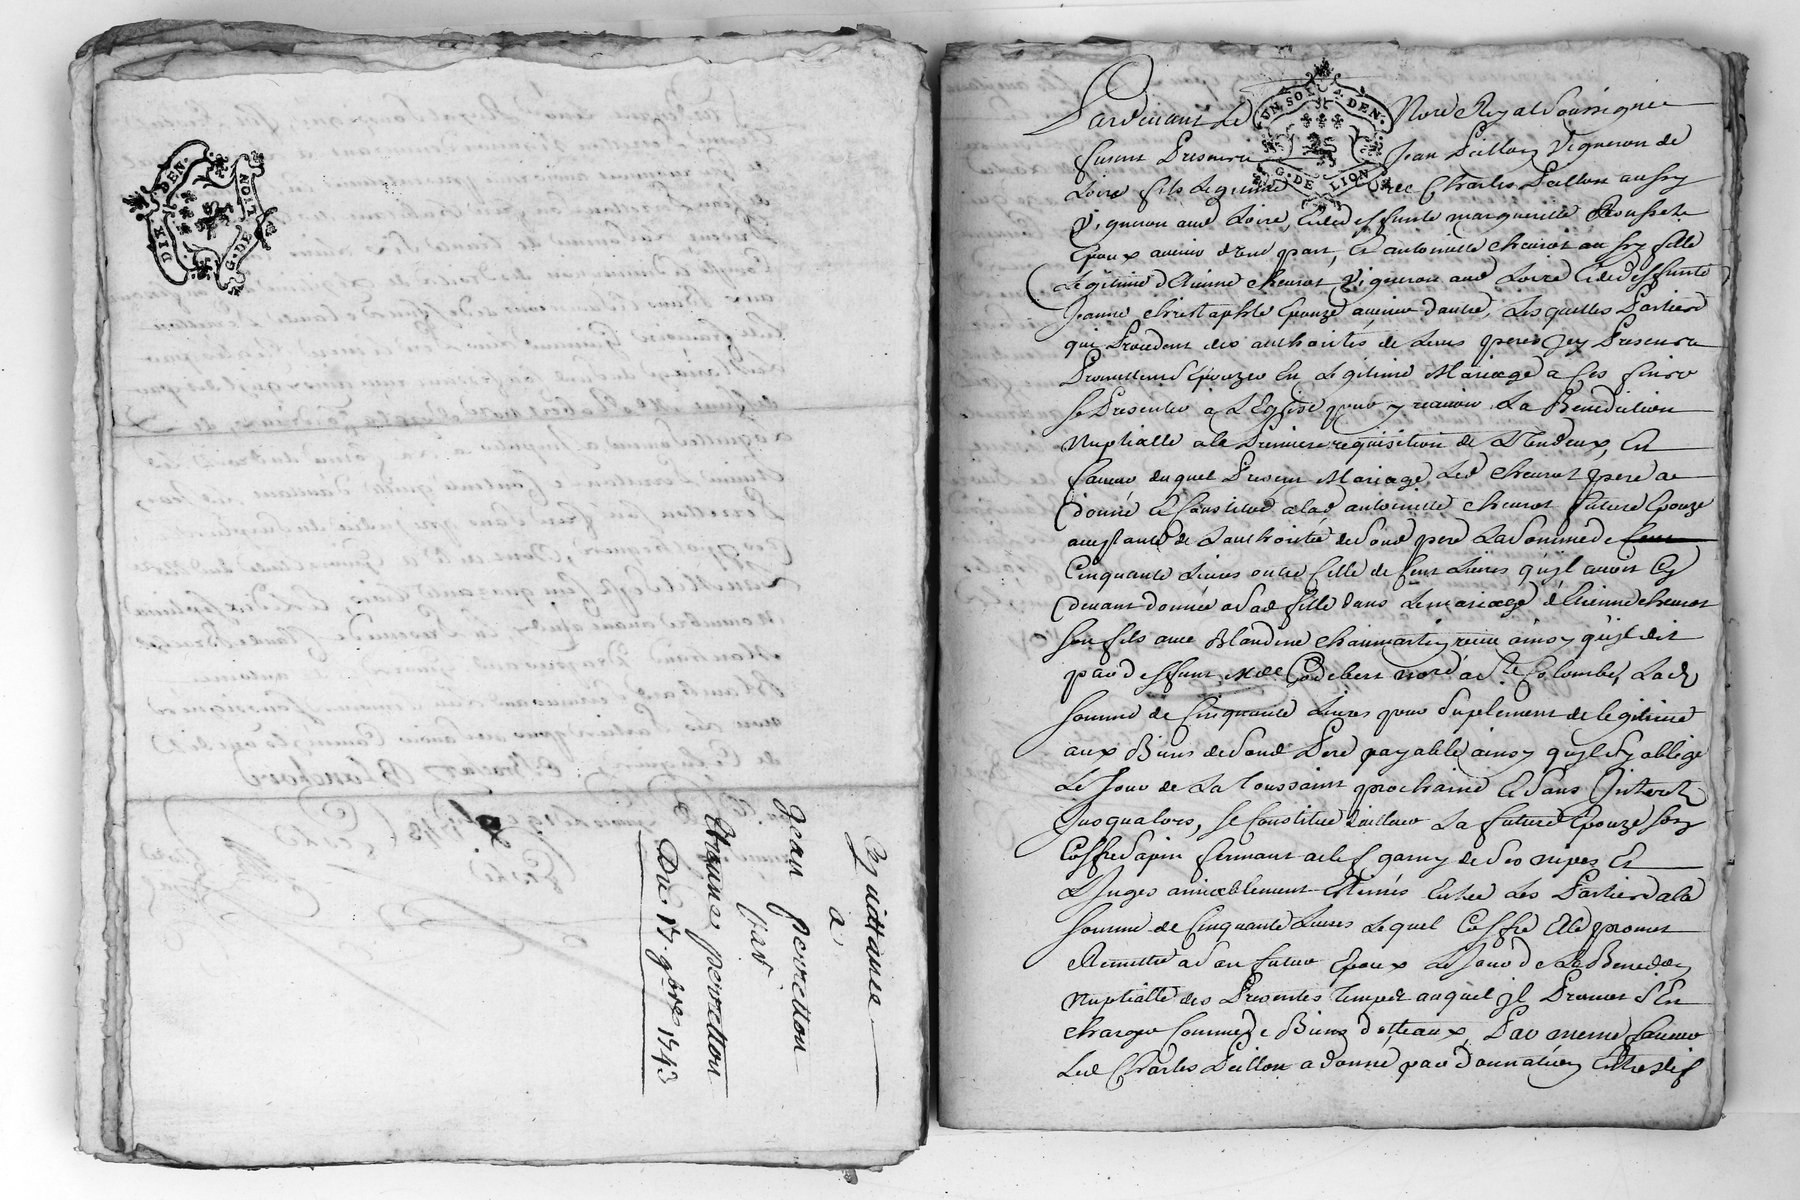 DIX DEN.
G. DE LION
Cy quittance
a
Jean perretton
par
Etienne perretton
Du 17 9bre 1743
UN SOL 4 DEN.
G. DE LION
Pardevant Le Nore Royal Soussigné
furent Presents Jean Paillon Vigneron de
Loire fils Legitime de Charles Paillon aussy
Vigneron aud Loire, et de deffunte marguerite Rousset
Epoux avenir d'une part, Et antoinette chevrot aussy fille
Legitime d'Etienne chevrot Vigneron aud Loire et de deffunte
Jeanne christophle Epouze avenir d'autre, Lesquelles Parties
qui Procedent des authorités de Leurs peres Jcy Presents
Promettent s'Epouzer En Legitime Mariage a Ces fins
se Presenter a L'Eglise pour y recevoir La Benediction
Nuptialle a la Premiere requisition de L'un deux, En
faveur duquel Present Mariage Led chevrot pere a
donné Et Constitué a lad antoinette chevrot future Epouze
acceptante de L'authorité de Sond pere La Somme de
Cinquante Livres outre Celle de Cent Livres qu'jl avoit Cy
devant donnée a Sad fille dans Le mariage d'Etienne chevrot
Son fils avec Blandine chaumartin reçu ainsy qu'jl dit
par deffunt Me Godebert nore a Ste Colombe, Lad
Somme de Cinquante Livres pour Suplement de legitime
aux Biens de Sond Pere payable ainsy qu'jl S'y obblige
Le Jour de La Toussaint prochaine Et Sans Jnterets
Jusqualors, Se Constitue d'ailleurs La future Epouze Son
Coffre Sapin fermant a clef garny de Ses nipes Et
Linges amiablement Estimés Entre Les Parties a la
Somme de Cinquante Livres Lequel Coffre Elle promet
Remettre a Son futur Epoux Le Jour de La Benedon
Nuptialle des Presentes Temps auquel jl Promet S'En
charger Comme de Biens dotteaux, Par meme faveur
Led Charles Paillon a donné par donnation Entre vifs